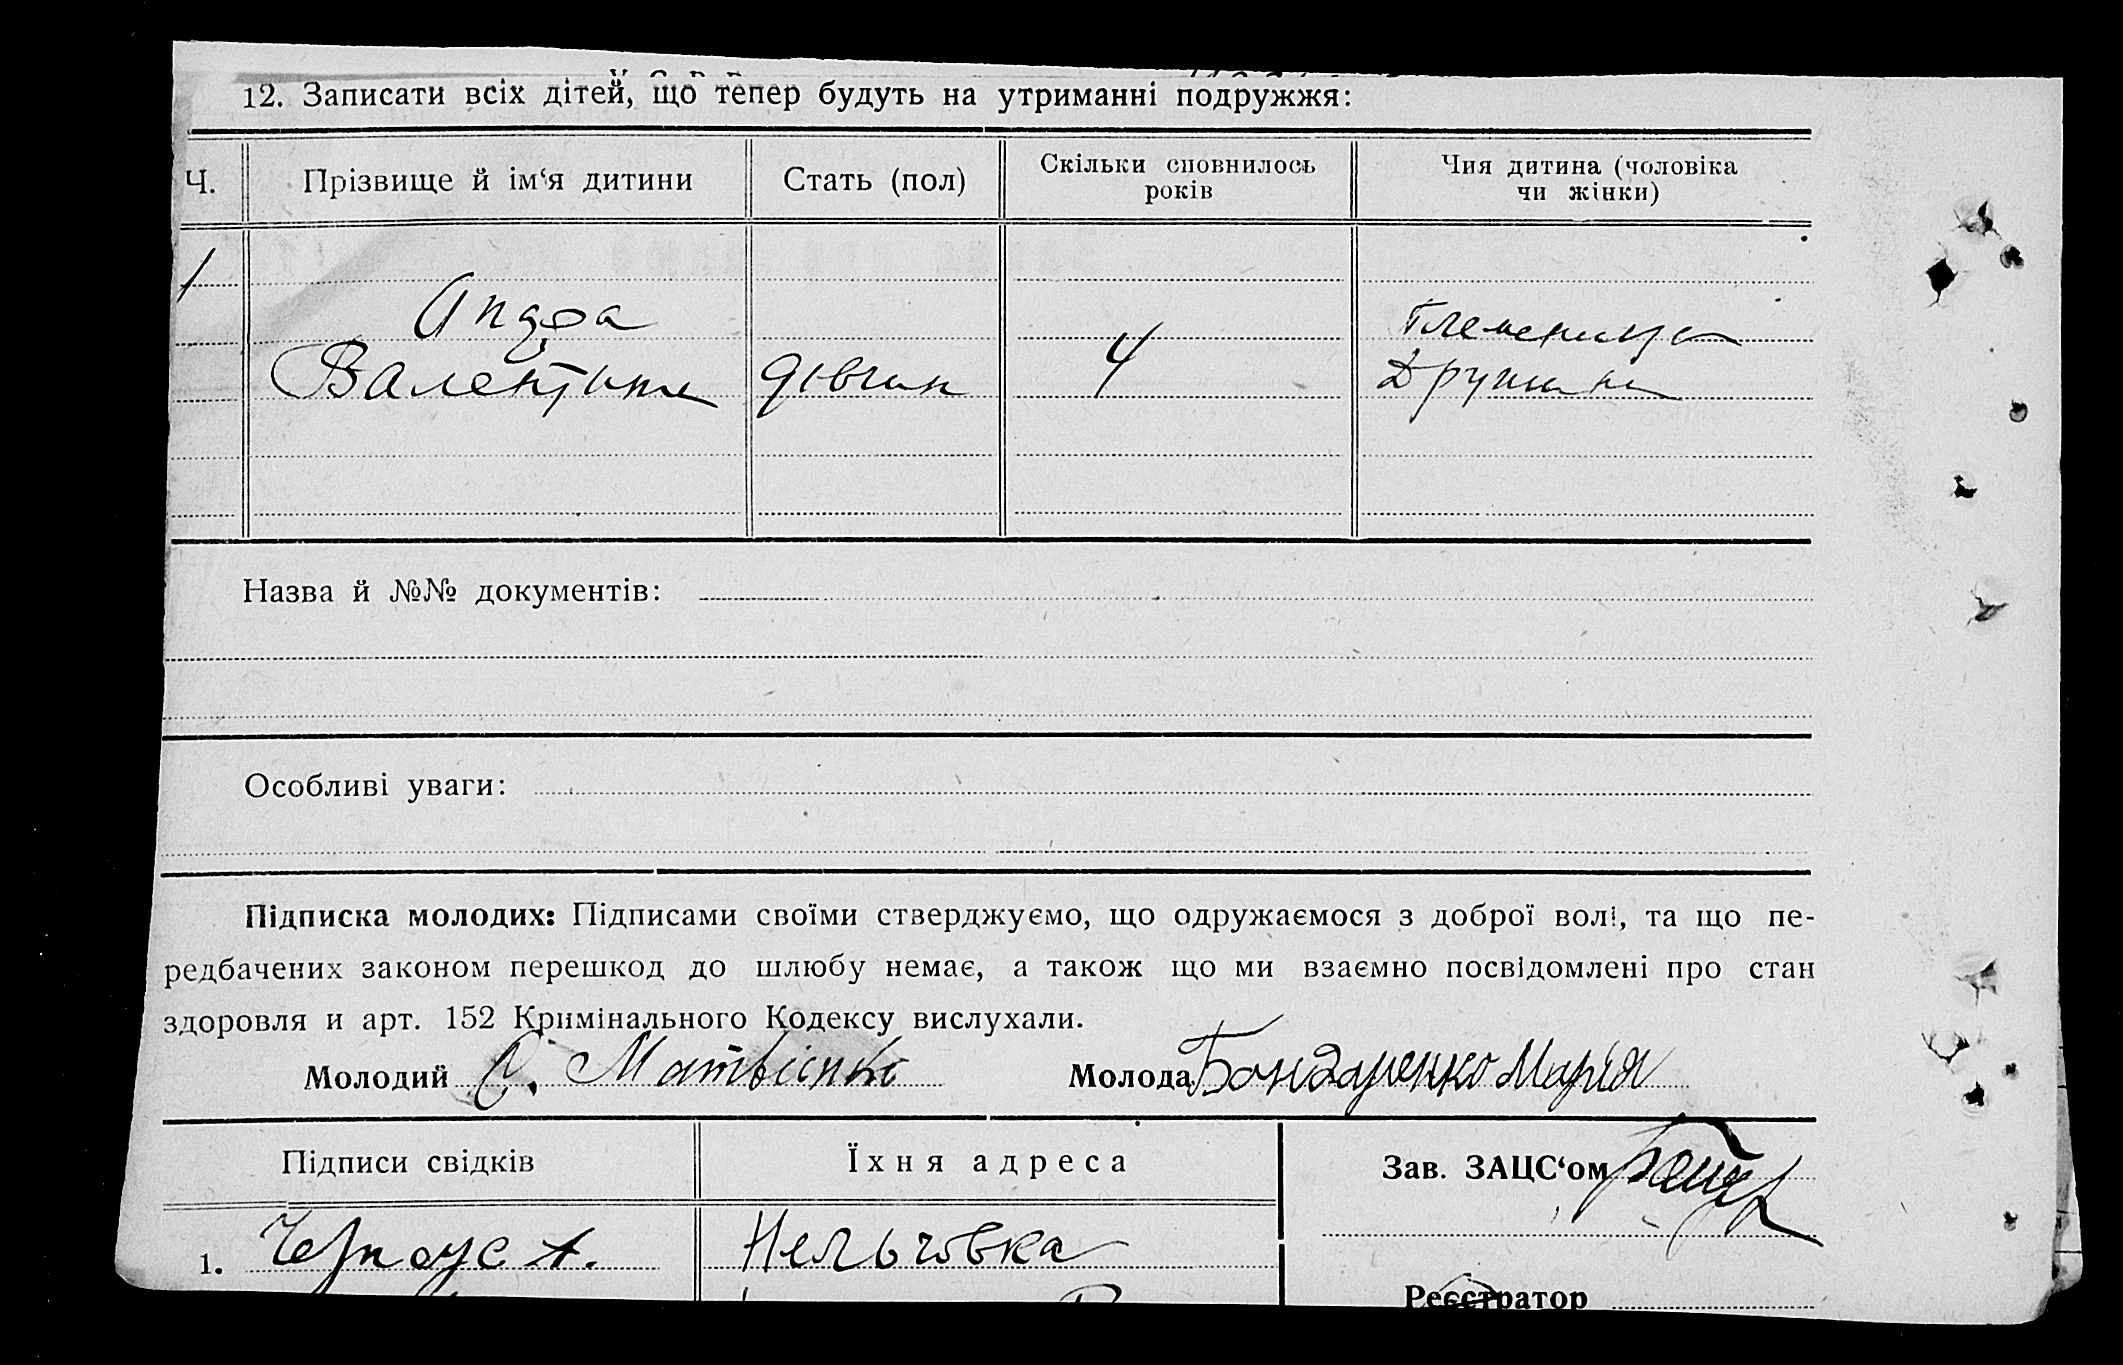 12. Записати всіх дітей, що тепер будуть на утриманні подружжя:
Ч. Прізвище й ім‘я дитини Стать (пол) Скільки сповнилось років Чия дитина (чоловіка чи жінки)
1
Племениця
Валентина дівчин 4 Дружини
Назва й №№ документів:
Особливі уваги:
Підписка молодих: Підписами своїми стверджуємо, що одружаємося з доброї волі, та що пе-
редбачених законом перешкод до шлюбу немає, а також що ми взаємно посвідомлені про стан
здоровля и арт. 152 Кримінального Кодексу вислухали.
Молодий С. Матвієнко Молода Бондаренко Марія
Підписи свідків Їхня адреса Зав. ЗАЦС‘ом
1. Черноус А. Нельговка
Реєстратор